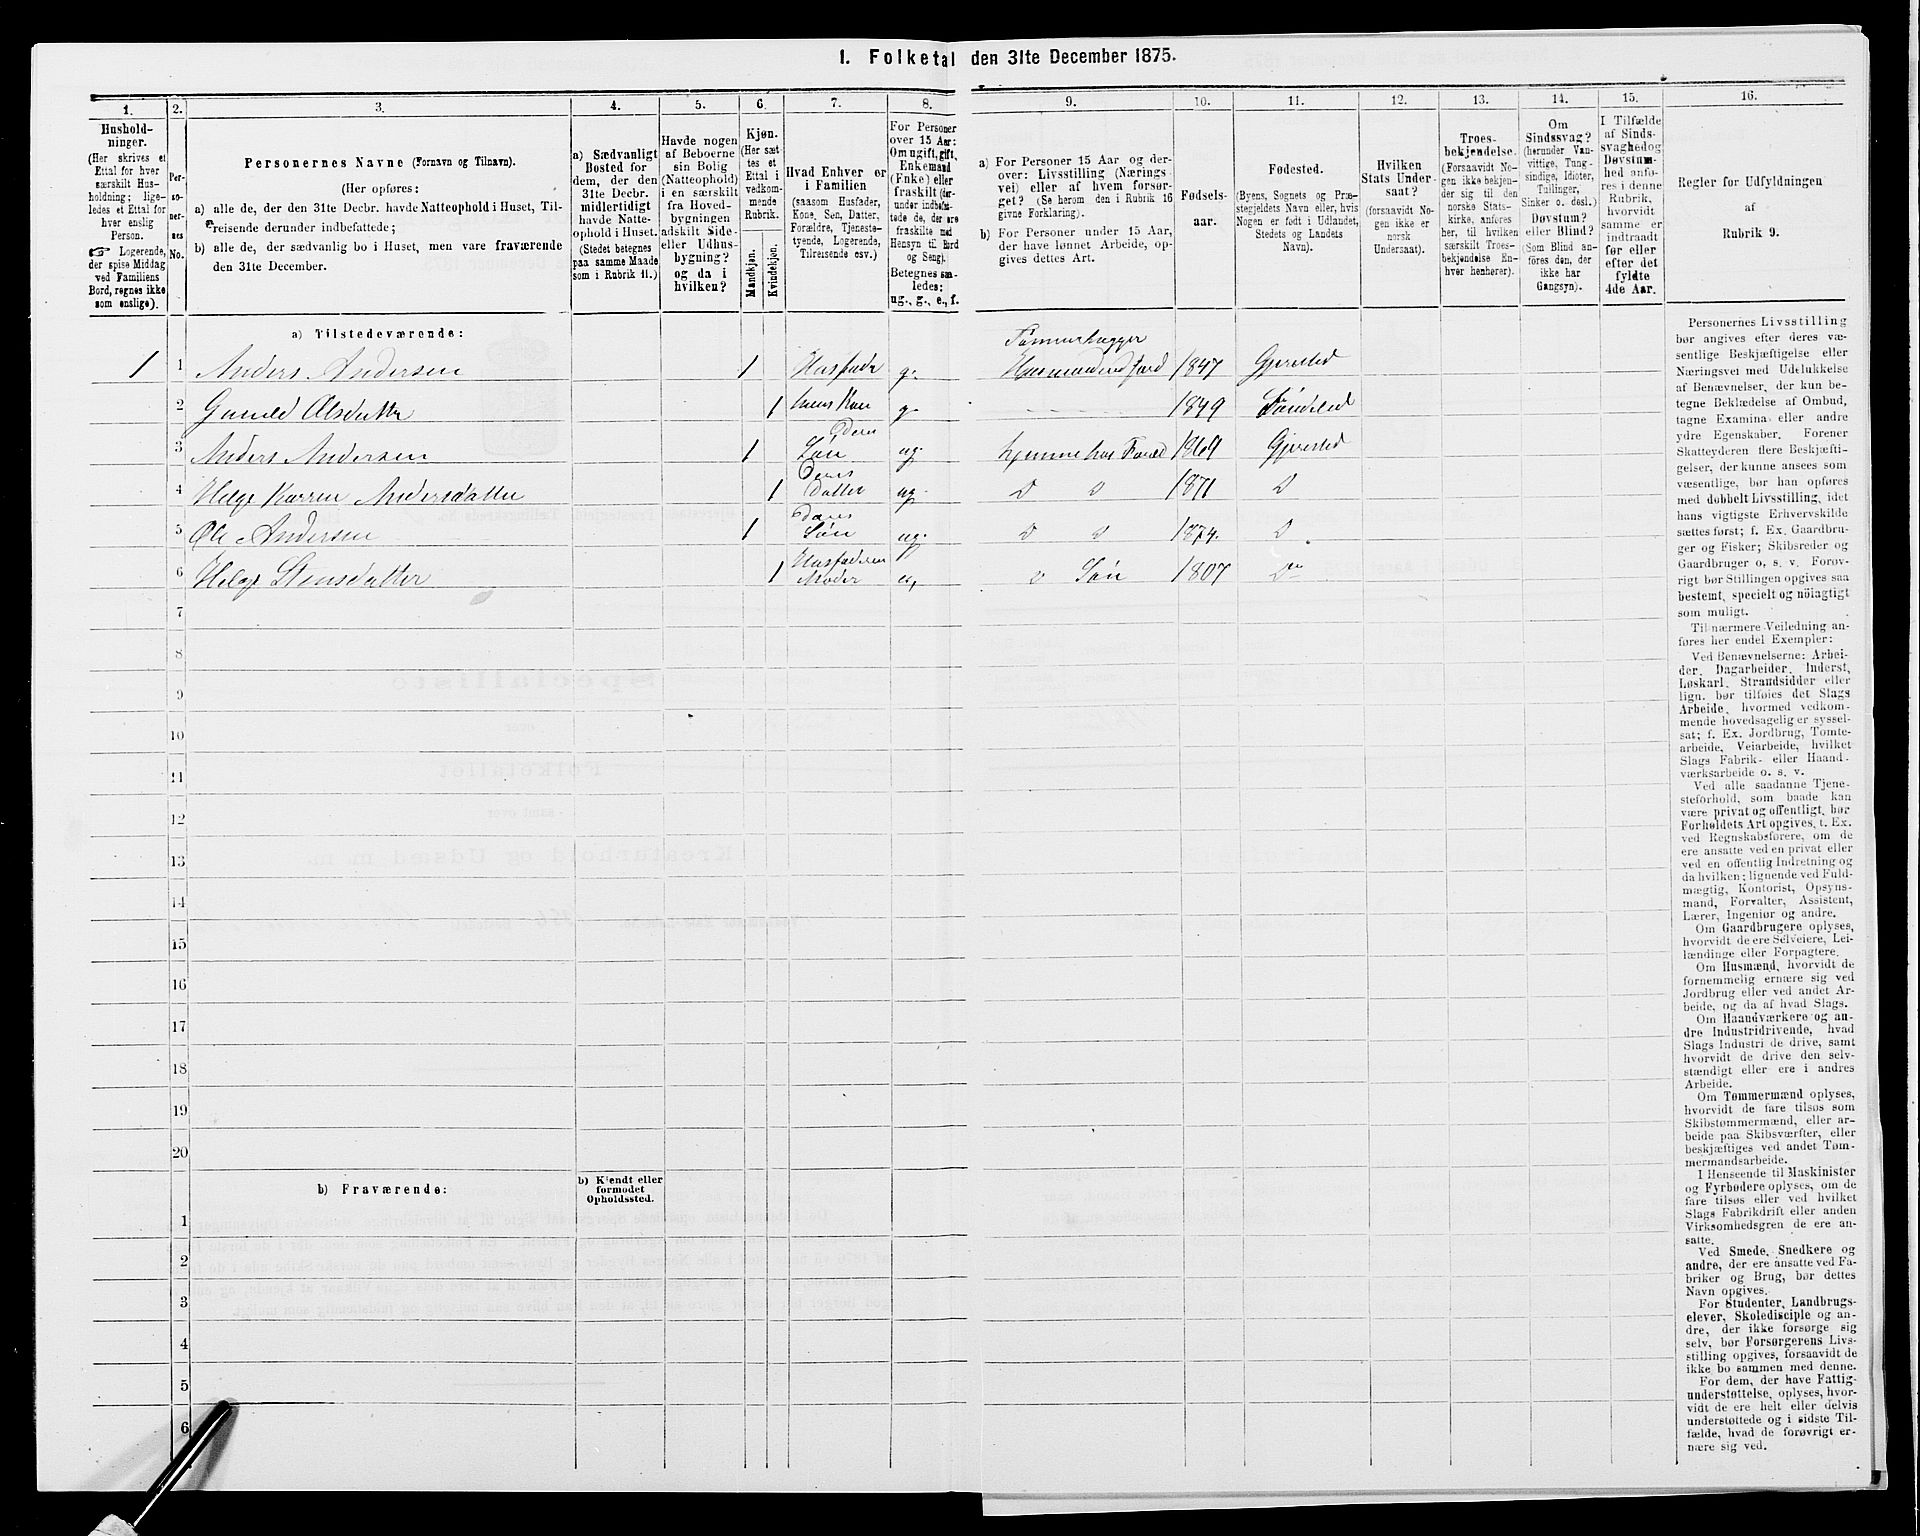 1. Folketal den 31te December 1875.
1.
Hushold-
ninger.
(Her skrives et
Ettal for hver
særskilt Hus-
holdning; lige-
ledes et Ettal for
hver enslig
Person.
☞ Logerende,
der spise Middag
ved Familiens
Bord, regnes ikke
som enslige).
2.
Per-
so-
ner-
nes
No.
3.
Personernes Navne (Fornavn og Tilnavn).
(Her opføres:
a) alle de, der den 31te Decbr. havde Natteophold i Huset, Til-
reisende derunder indbefattede;
b) alle de, der sædvanlig bo i Huset, men vare fraværende
den 31te December.
4.
a) Sædvanligt
Bosted for
dem, der den
31te Decbr.
midlertidigt
havde Natte-
ophold i Huset.
(Stedet betegnes
paa samme Maade
som i Rubrik 11.)
5.
Havde nogen
af Beboerne
sin Bolig
(Natteophold)
i en særskilt
fra Hoved-
bygningen
adskilt Side-
eller Udhus-
bygning?
og da i
hvilken?
6.
Kjøn.
(Her sæt-
tes et
Ettal i
vedkom-
mende
Rubrik.
Mandkjøn.
Kvindekjøn.
7.
Hvad Enhver er
i Familien
(saasom Husfader,
Kone, Søn, Datter,
Forældre, Tjeneste-
tyende, Logerende,
Tilreisende osv.)
8.
For Personer
over 15 Aar:
Om ugift, gift,
Enkemand
(Enke) eller
fraskilt (der-
under indbefat-
tede de, der ere
fraskilte med
Hensyn til Bord
og Seng).
Betegnes saa-
ledes:
ug., g., e., f.
9.
a) For Personer 15 Aar og der-
over: Livsstilling (Nærings-
vei) eller af hvem forsør-
get? (Se herom den i Rubrik 16
givne Forklaring).
b) For Personer under 15 Aar,
der have lønnet Arbeide, op-
gives dettes Art.
10.
Fødsels-
aar.
11.
Fødested.
(Byens, Sognets og Præ-
stegjeldets Navn eller, hvis
Nogen er født i Udlandet,
Stedets og Landets
Navn).
12.
Hvilken
Stats Under-
saat?
(forsaavidt No-
gen ikke er
norsk
Undersaat).
13.
Troes-
bekjendelse.
(Forsaavidt No-
gen ikke bekjen-
der sig til den
norske Stats-
kirke, anføres
her, til hvilken
særskilt Troes-
bekjendelse En-
hver henhører).
14.
Om
Sindssvag?
(herunder Van-
vittige, Tung-
sindige, Idioter,
Tullinger,
Sinker o. desl.)
Døvstum?
eller Blind?
(Som Blind an-
føres den, der
ikke har
Gangsyn).
15.
I Tilfælde
af Sinds-
svaghed og
Døvstum-
hed anfø-
res i denne
Rubrik,
hvorvidt
samme er
indtraadt
før eller
efter det
fyldte
4de Aar.
16.
Regler for Udfyldningen
af
Rubrik 9.
a) Tilstedeværende:
Tømmerhugger
1 1 Anders Andersen 1 Husfader g. Husmand med Jord 1847 Gjerestad
2 Gunild Olsdatter 1 hans Kone g. 1849 Søndeled
3 Anders Andersen 1 Deres Søn ug. hjemme hos Foræld 1869 Gjerestad
4 Helge Karren Andersdatter 1 Deres Datter ug. D D 1871 D
5 Ole Andersen 1 Deres Søn ug. D D 1874. D
6 Helge Stensdatter 1 Husfaderens Moder e, D Søn 1807 Do
7
8
9
10
11
12
13
14
15
16
17
18
19
20
b) Fraværende:
b) Kjendt eller
formodet
Opholdssted.
1
2
3
4
5
6
Personernes Livsstilling
bør angives efter deres væ-
sentlige Beskjæftigelse eller
Næringsvei med Udelukkelse
af Benævnelser, der kun be-
tegne Beklædelse af Ombud,
tagne Examina eller andre
ydre Egenskaber. Forener
Skatteyderen flere Beskjæfti-
gelser, der kunne ansees som
væsentlige, bør han opføres
med dobbelt Livsstilling, idet
hans vigtigste Erhvervskilde
sættes først; f. Ex. Gaardbru-
ger og Fisker; Skibsreder og
Gaardbruger o. s. v. Forøv-
rigt bør Stillingen opgives saa
bestemt, specielt og nöiagtigt
som muligt.
Til nærmere Veiledning an-
føres her endel Exempler:
Ved Benævnelserne: Arbei-
der, Dagarbeider, Inderst,
Løskarl, Strandsidder eller
lign. bør tilføies det Slags
Arbeide, hvormed vedkom-
mende hovedsagelig er syssel-
sat; f. Ex. Jordbrug, Tomte-
arbeide, Veiarbeide, hvilket
Slags Fabrik- eller Haand-
værksarbeide o. s. v.
Ved alle saadanne Tjene-
steforhold, som baade kan
være privat og offentligt, bør
Forholdets Art opgives, t. Ex.
ved Regnskabsførere, om de
ere ansatte ved en privat eller
ved en offentlig Indretning og
da hvilken; lignende ved Fuld-
mægtig, Kontorist, Opsyns-
mand, Forvalter, Assistent,
Lærer, Ingeniør og andre.
Om Gaardbrugere oplyses,
hvorvidt de ere Selveiere, Lei-
lændinge eller Forpagtere.
Om Husmænd, hvorvidt de
fornemmelig ernære sig ved
Jordbrug eller ved andet Ar-
beide, og da af hvad Slags.
Om Haandværkere og an-
dre Industridrivende, hvad
Slags Industri de drive, samt
hvorvidt de drive den selv-
stændigt eller ere i andres
Arbeide.
Om Tømmermænd oplyses,
hvorvidt de fare tilsøs som
Skibstømmermænd, eller ar-
beide paa Skibsværfter, eller
beskjæftiges ved andet Tøm-
mermandsarbeide.
I Henseende til Maskinister
og Fyrbødere oplyses, om de
fare tilsøs eller ved hvilket
Slags Fabrikdrift eller anden
Virksomhedsgren de ere an-
satte.
Ved Smede, Snedkere og
andre, der ere ansatte ved Fa-
briker og Brug, bør dettes
Navn opgives.
For Studenter, Landbrugs-
elever, Skoledisciple og an-
dre, der ikke forsørge sig
selv, bør Forsørgerens Livs-
stilling opgives, forsaavidt de
ikke bo sammen med denne.
For dem, der have Fattig-
understøttelse, oplyses, hvor-
vidt de ere helt eller delvis
understøttede og i sidste Til-
fælde, hvad de forøvrigt er-
nære sig ved.